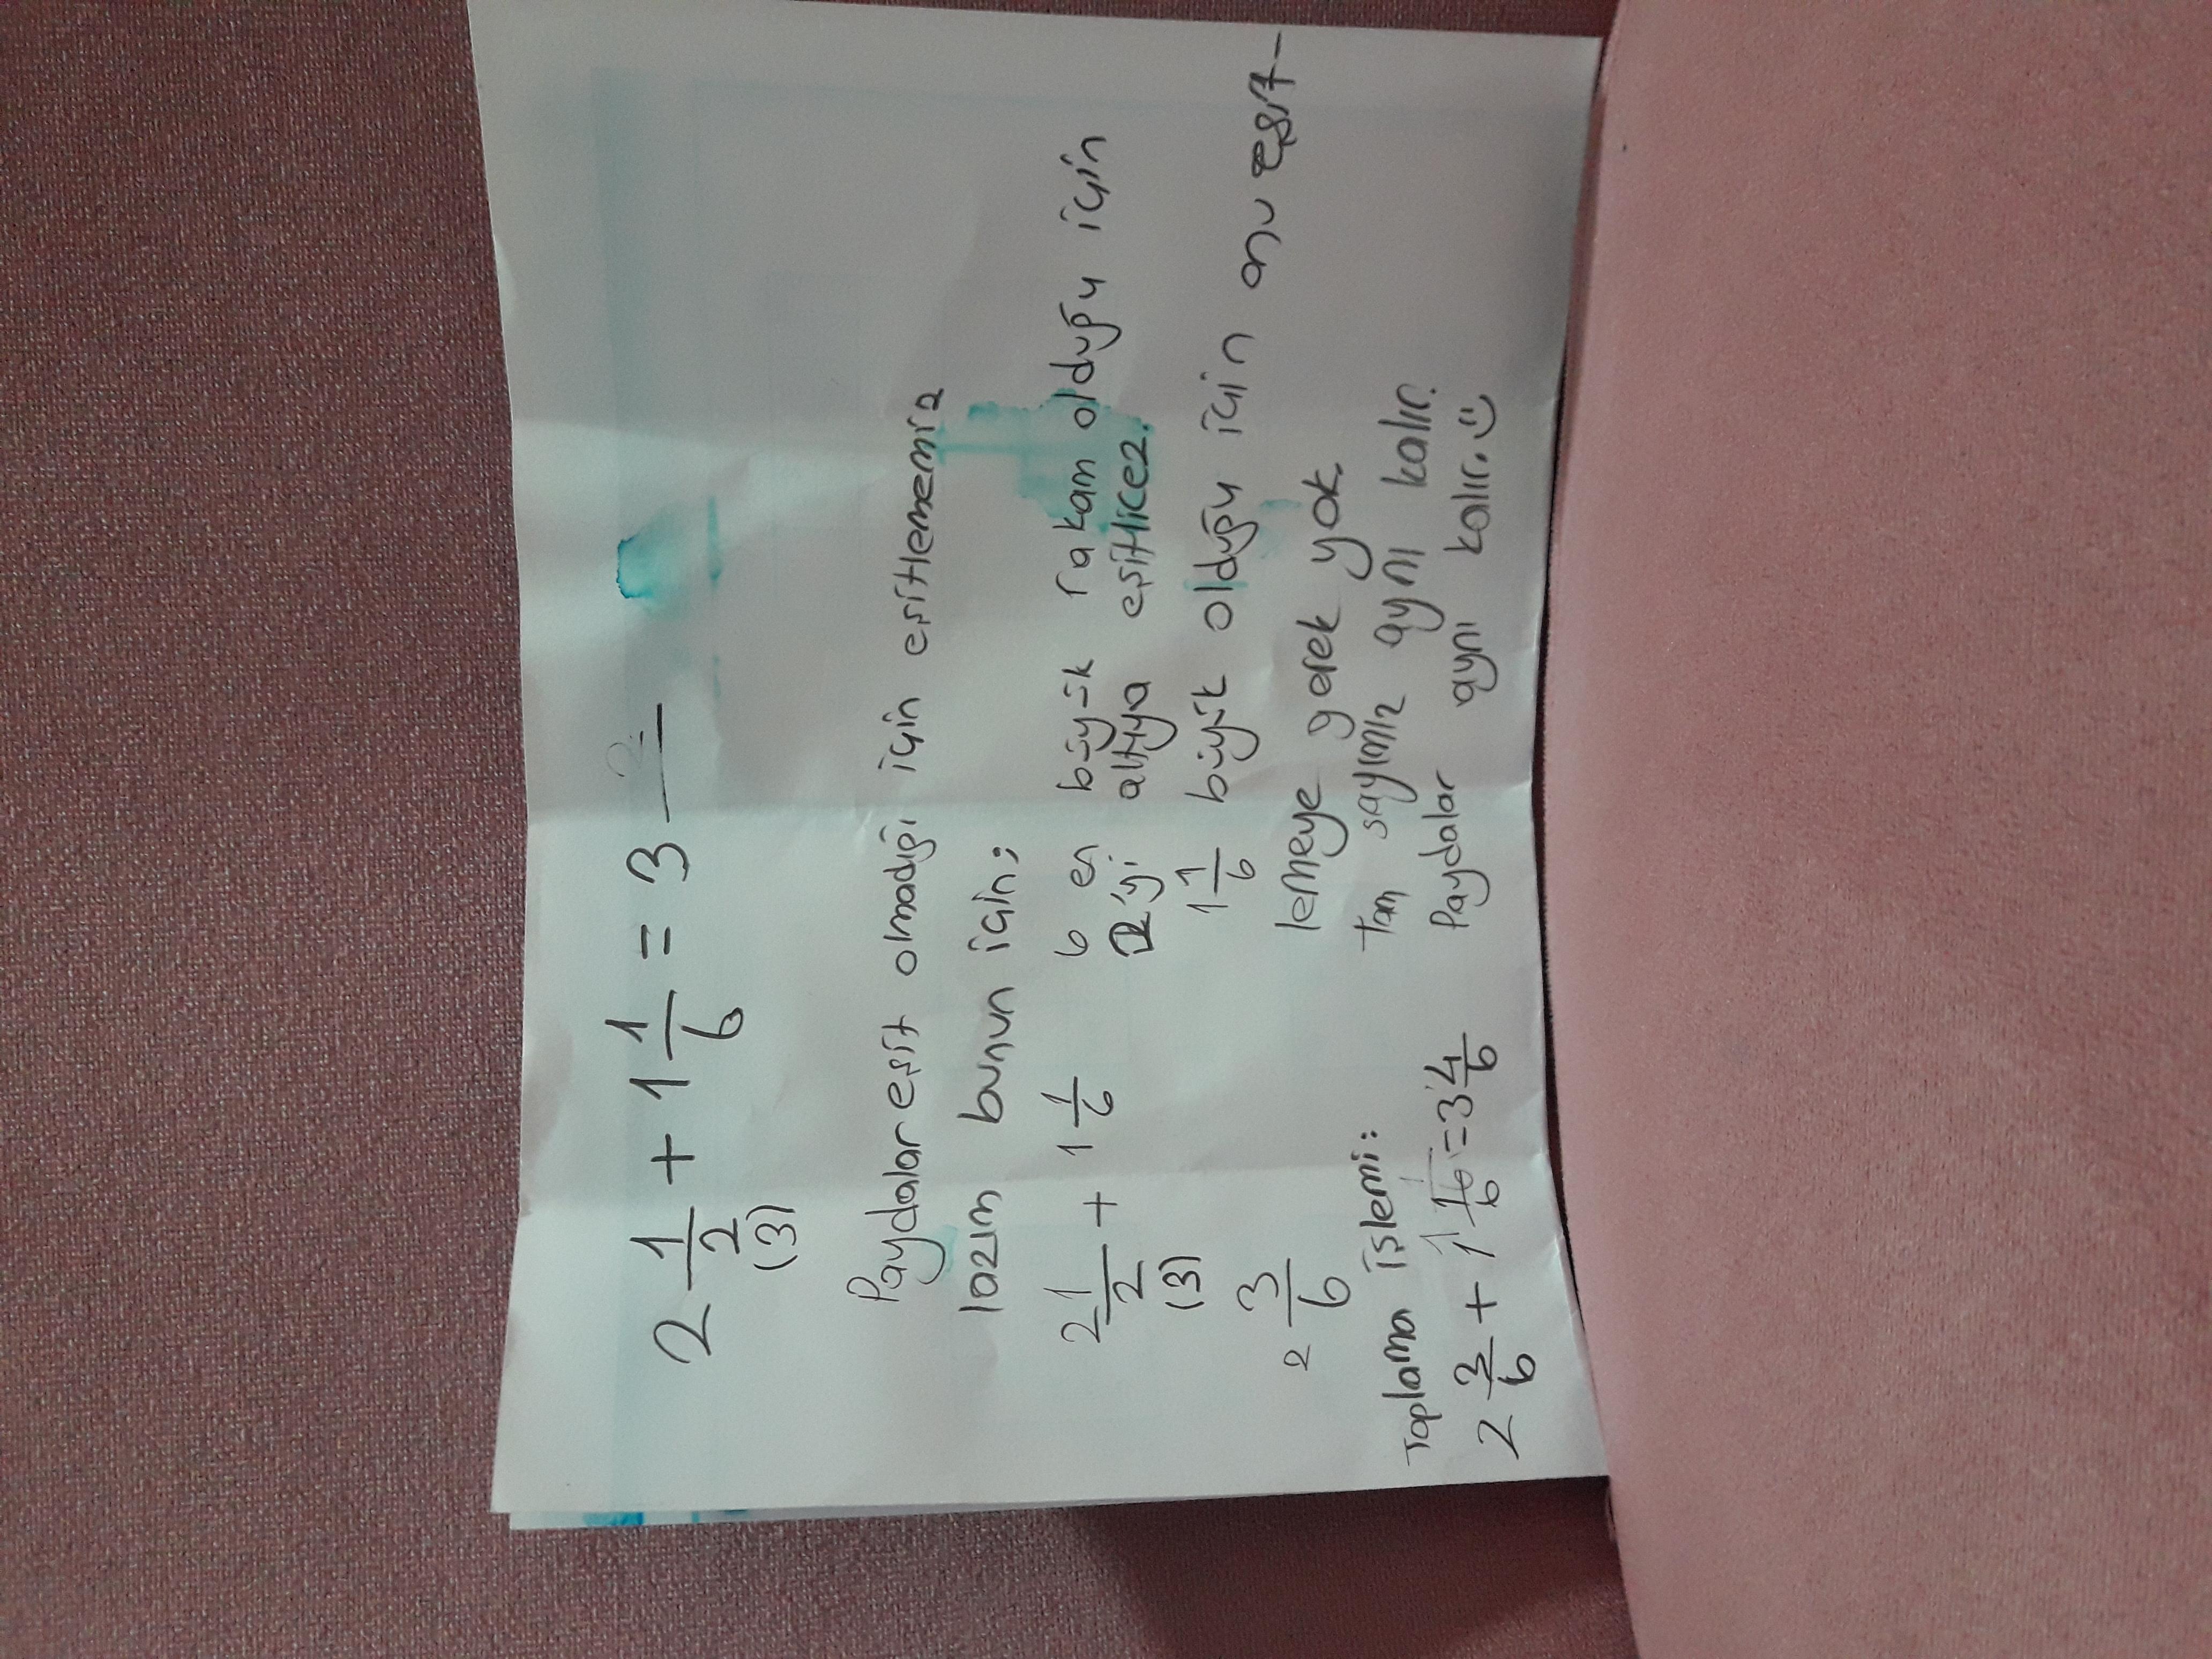 2 1/2 + 1 1/6 = 3
(3)
Paydalar eşit olmadığı için eşitlememiz
lazım bunun için;
2 1/2 + 1 1/6 6 en büyük rakam olduğu için
(3) 2'yi altıya eşitlicez.
2 3/6 1 1/6 büyük olduğu için onu eşit-
lemeye gerek yok.
Tam sayımız aynı kalır.
Paydalar aynı kalır. ☺
Toplama işlemi:
2 3/6 + 1 1/6 = 3 4/6